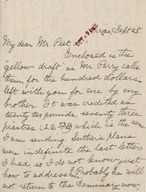 Sept 28
My dear Mr. Peet
Enclosed is the
yellow draft as Mr. Parry calls
them, for the hundred dollars
left with you for me by my
brother. It was credited as
twenty two pounds, seventy three
piastres which is the
I am sending. Luther's plans
were indefinite the last letter
I had so I do not know just
how to address. Probably he will
not return to the Seminary now